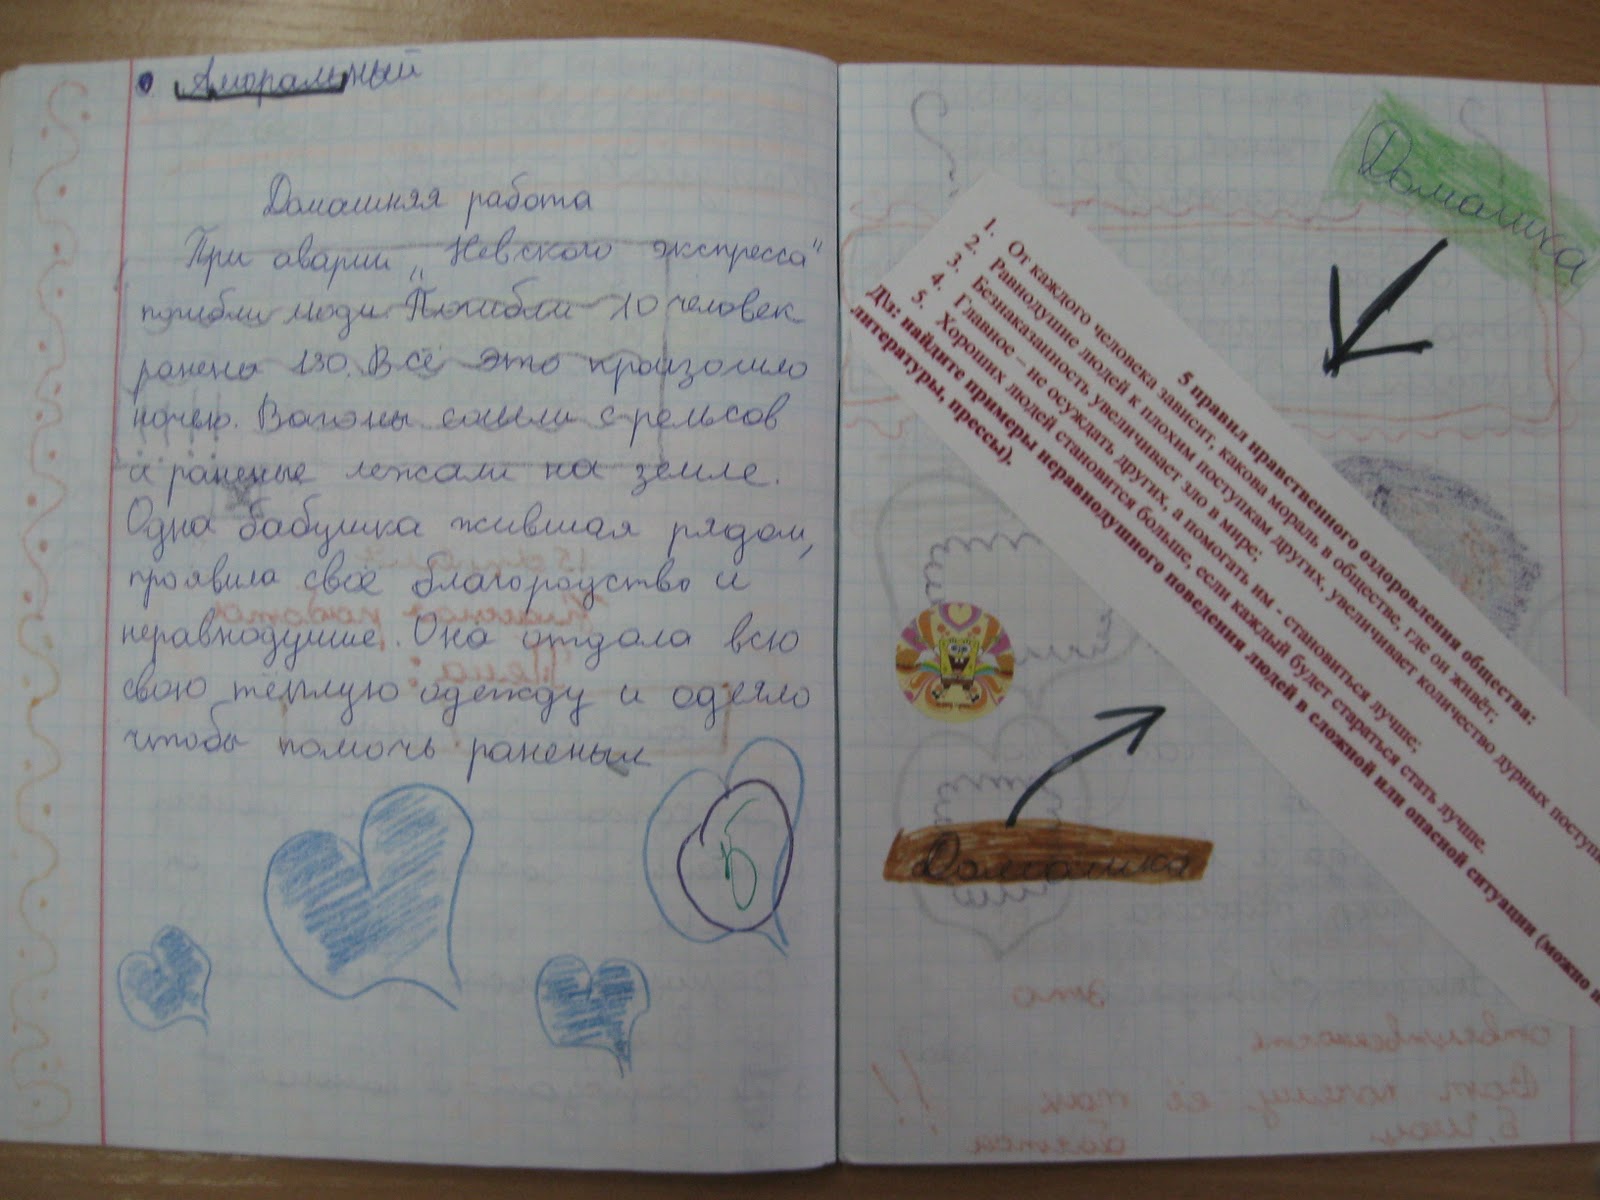 Аморальный
Домашняя работа
При аварии „Невского экспресса"
погибли люди Погибли 10 человек
ранено 130. Всё это произошло
ночью. Вагоны сошли с рельсов
и раненые лежали на земле.
Одна бабушка жившая рядом,
проявила своё благородство и
неравнодушие. Она отдала всю
свою тёплую одежду и одеяло
чтобы помочь раненым
Домашка
5 правил нравственного оздоровления общества:
1. От каждого человека зависит, какова мораль в обществе, где он живёт;
2. Равнодушие людей к плохим поступкам других, увеличивает количество дурных поступк
3. Безнаказанность увеличивает зло в мире;
4. Главное – не осуждать других, а помогать им - становиться лучше;
5. Хороших людей становится больше, если каждый будет стараться стать лучше.
Д\з: найдите примеры неравнодушного поведения людей в сложной или опасной ситуации (можно и
литературы, прессы).
Домашка
это
ответственность
Вот почему её так
боятся
!!